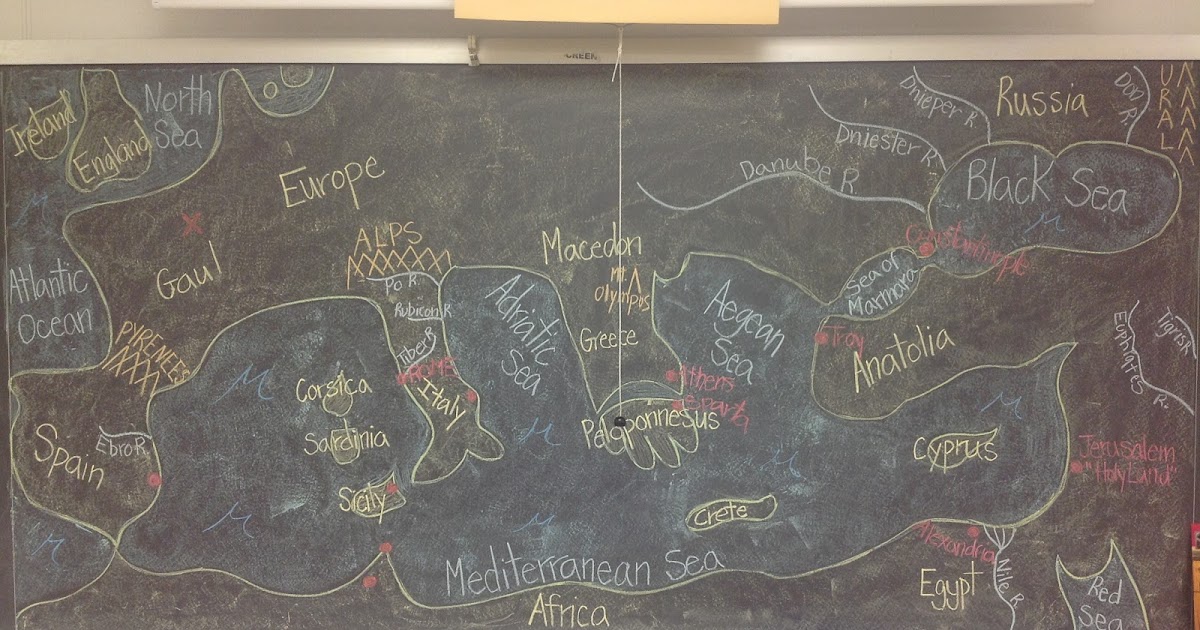 GREEK
Ireland
England
North
Sea
Europe
Dnieper R.
Russia
Don R.
URAL
Dniester R.
Danube R.
Black Sea
Constantinople
ALPS
Macedon
Mt.
Olympos
Gaul
Atlantic
Ocean
Po R.
Rubicon R.
Tiber R.
ROME
Italy
Adriatic
Sea
Greece
Aegean
Sea
Sea of
Marmara
Troy
Anatolia
Euphrates R.
Tigris R.
PYRENEES
Corsica
Sardinia
Sicily
Athens
Sparta
Peloponnesus
Spain
Ebro R.
Cyprus
Jerusalem
"Holy Land"
Crete
Alexandria
Mediterranean Sea
Africa
Egypt
Nile R.
Red
Sea